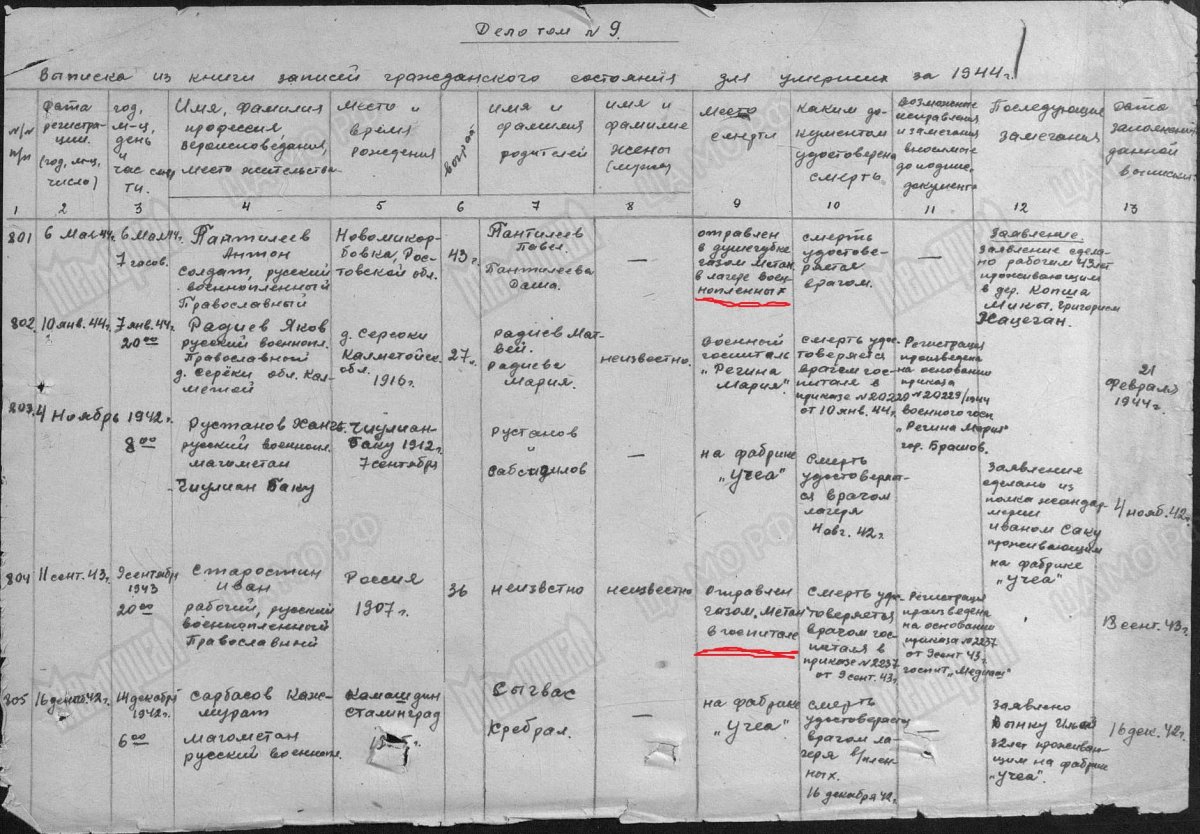 Дело том № 9.
Выписка из книги записей гражданского состояния для умерших за 1944 г.
№/№
п/п
Дата
регистра-
ции.
(год, м-ц,
число)
год,
м-ц,
день
и
час смер
ти.
Имя, фамилия
профессия,
вероисповедания,
место жительства
Место и
время
рождения
возраст
имя и
фамилия
родителей
имя и
фамилие
жены
(мужа)
Место
смерти
каким до-
кументом
удостоверена
смерть.
Возможные
исправления
и замечания
вносимые
до подпис.
документа
Последующие
замечания
Дата
заполнения
данной
выписки
1 2 3 4 5 6 7 8 9 10 11 12 13
801
6 Мая 44г.
6 Мая 44г.
7 часов.
Пантилеев
Антон
солдат, русский
военнопленный
Православный
Новомикор-
бовка, Рос-
товской обл.
43 г.
Пантилеев
Павел.
Пантилеева
Даша.
—
отравлен
в душегубке
газом метан
в лагере воен-
нопленных
смерть
удостове-
ряется
врачом.
—
Заявление.
заявление сдела-
но рабочим 43 лет
проживающим
в дер. Копша
Микы. Григорием
Кацеган.
802
10 янв. 44г.
7 янв. 44г.
20 00
Радиев Яков
русский военнопл.
Православный
д. Серёки обл. Кал-
метей
д. Серёки
Калметойск.
обл.
1916 г.
27 г.
Радиев Мат-
вей.
Радиева
Мария.
неизвестно.
Военный
госпиталь
"Регина
Мария"
смерть удос-
товеряется
врачем гос-
питаля в
приказе №20220
от 10 янв. 44г.
Регистрация
произведена
на основании
приказа
№20229/1944
военного госп.
"Регина Мария"
гор. Брашов.
21
Февраля
1944г.
803.
4 Ноябрь 1942г.
8 00
Рустанов Ханг.
русский военнопл.
магометан
Чиулиан Баку
Чиулиан-
Баку 1912г.
7 сентября
Рустанов
и
Сабсидилов
—
на фабрике
"Учеа"
Смерть
удостоверяет-
ся врачом
лагеря
4 авг. 42г.
Заявления
сделаны из
полка жандар-
мерии
Иваном Саку
проживающим
на фабрике
"Учеа"
4 нояб. 42г.
804
11 сент. 43г.
9 сентября
1943
20 00
Старостин
Иван
рабочий, русский
военнопленный
Православный
Россия
1907 г.
36
неизвестно
неизвестно
Отравлен
газом. Метан
в госпитале
Смерть удо-
товеряется
врачом гос-
питаля в
приказе №2237
от 9 сент. 43г.
Регистрация
произведена
на основании
приказа №2237
от 9 сент 43г.
госпит. "Медиаш"
13 сент. 43г.
805
16 декаб. 42г.
14 декабря
1942г.
6 00
Сарбасов Каж-
мурат
магометан
русский военнопл.
Камашидин
Сталинград
Сыгвас
Кребрал.
—
на фабрике
"Учеа"
смерть
удостоверяется
врачом ла-
геря в/плен-
ных.
16 декабря 42г.
—
заявлено
Вынку Ильей
32 лет проживаю-
щим на фабрике
"Учеа".
16 дек. 42г.
ЦАМО РФ
Мемориал